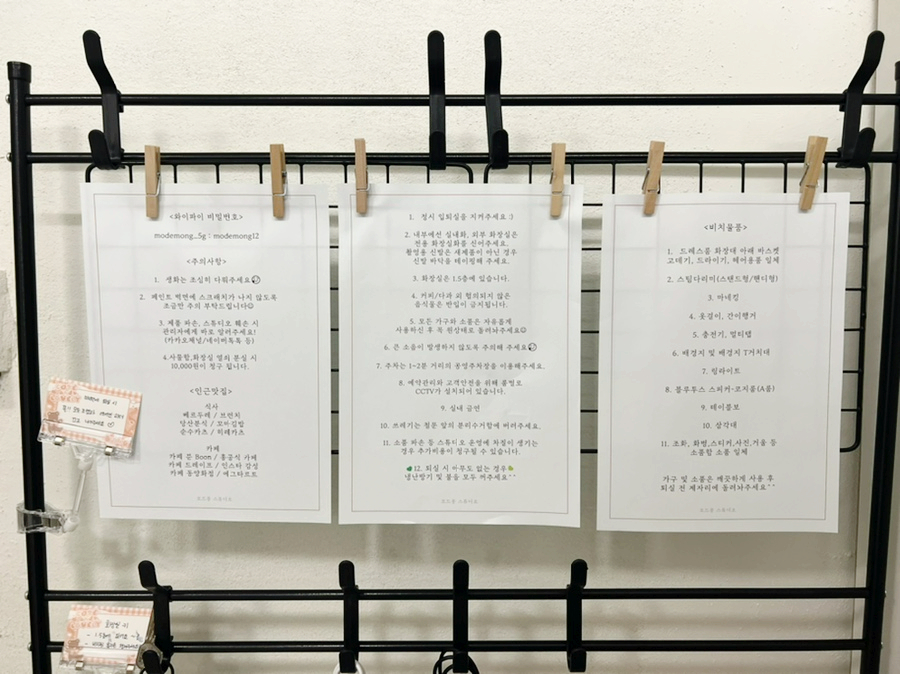 <와이파이 비밀번호>
modemong_5g : modemong12
<주의사항>
1. 생화는 조심히 다뤄주세요
2. 페인트 벽면에 스크래치가 나지 않도록
조금만 주의 부탁드립니다☺
3. 제품 파손, 스튜디오 훼손 시
관리자에게 바로 알려주세요!
(카카오채널/네이버톡톡 등)
4.사물함,화장실 열쇠 분실 시
10,000원이 청구 됩니다.
<인근맛집>
식사
베르두레 / 브런치
당산분식 / 꼬마김밥
순수카츠 / 히레카츠
카페
카페 붐 Boom / 홍콩식 카페
카페 드레이프 / 인스타 감성
카페 동양화점 / 에그타르트
모드몽 스튜디오
1. 정시 입퇴실을 지켜주세요 :)
2. 내부에선 실내화, 외부 화장실은
전용 화장실화를 신어주세요.
촬영용 신발은 새제품이 아닌 경우
신발 바닥을 테이핑해 주세요.
3. 화장실은 1.5층에 있습니다.
4. 커피/다과 외 협의되지 않은
음식물은 반입이 금지됩니다.
5. 모든 가구와 소품은 자유롭게
사용하신 후 꼭 원상태로 돌려놔주세요☺
6. 큰 소음이 발생하지 않도록 주의해 주세요
7. 주차는 1~2분 거리의 공영주차장을 이용해주세요.
8. 예약관리와 고객안전을 위해 출발로
CCTV가 설치되어 있습니다.
9. 실내 금연
10. 쓰레기는 철문 앞의 분리수거함에 버려주세요.
11. 소품 파손 등 스튜디오 운영에 차질이 생기는
경우 추가비용이 청구될 수 있습니다.
12. 퇴실 시 아무도 없는 경우
냉난방기 및 불을 모두 꺼주세요^^
모드몽 스튜디오
<비치물품>
1. 드레스룸 화장대 아래 바스켓
고데기, 드라이기, 헤어용품 일체
2. 스팀다리미(스탠드형/핸디형)
3. 마네킹
4. 옷걸이, 간이행거
5. 충전기, 멀티탭
6. 배경지 및 배경지 T거치대
7. 링라이트
8. 블루투스 스피커-코지룸(A룸)
9. 테이블보
10. 삼각대
11. 조화, 화병,스티커,사진,거울 등
소품함 소품 일체
가구 및 소품은 깨끗하게 사용 후
퇴실 전 제자리에 돌려놔주세요^^
모드몽 스튜디오